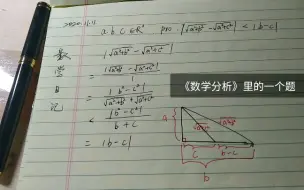 a.b.c ∈R⁺ pro. |√(a²+b²) - √(a²+c²)| < |b-c|
数学日记
|√(a²+b²) - √(a²+c²)|
= |√(a²+b²) - √(a²+c²)| / 1
= |b²-c²| / (√(a²+b²) + √(a²+c²))
< |b²-c²| / (b+c)
= |b-c|
《数学分析》里的一个题
a
c
b-c
b